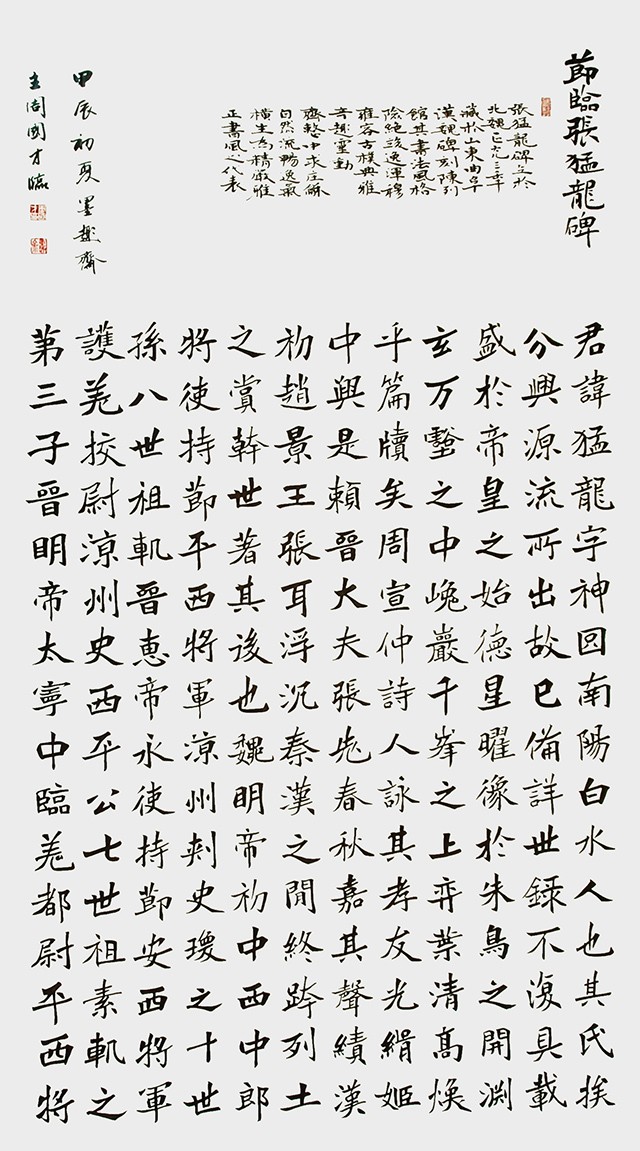 節臨張猛龍碑
張猛龍碑立於
北魏正光三年
藏於山東曲阜
漢魏碑刻陳列
館其書法風格
險絕峻逸渾穆
雍容古樸典雅
奇趣靈動
齊整中求
自然流暢逸氣
橫生為精嚴雅
正書風之代表
君諱猛龍字神冏南陽白水人也其氏族
分興源流所出故已備詳世錄不復具載
盛於帝皇之始德星曜像於朱鳥之閒淵
玄万壑之中巉巖千峯之上弈葉清高煥
乎篇牘矣周宣仲詩人詠其孝友光緝姬
中興是賴晉大夫張老春秋嘉其聲績漢
初趙景王張耳浮沉秦漢之閒終跨列土
之賞幹世著其後也魏明帝初中西中郎
將使持節平西將軍涼州刺史瓊之十世
孫八世祖軌晉惠帝永使持節安西將軍
護羌校尉涼州史西平公七世祖素軌之
第三子晉明帝太寧中臨羌都尉平西將
甲辰初夏墨趣齋
主周國才臨